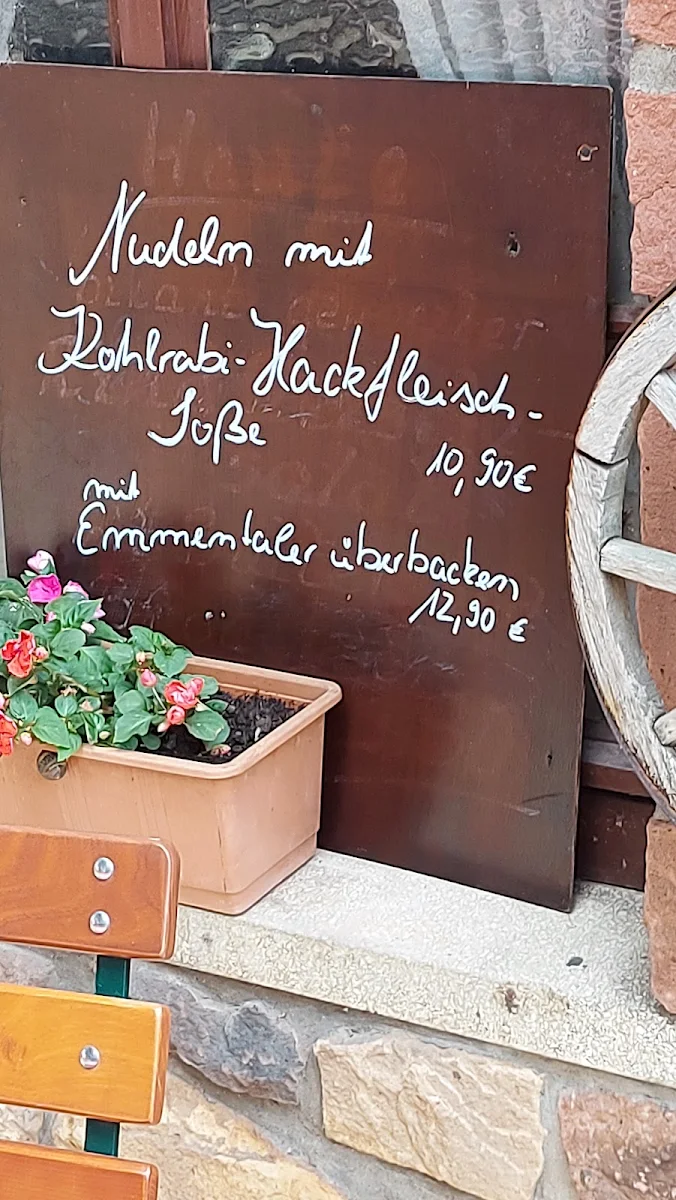 Nudeln mit
Kohlrabi-Hackfleisch-
Soße
10,90€
mit
Emmentaler überbacken
12,90 €